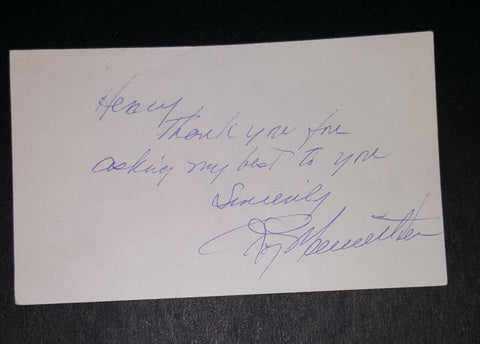 Henry,
Thank you for
asking my best to you
Sincerely